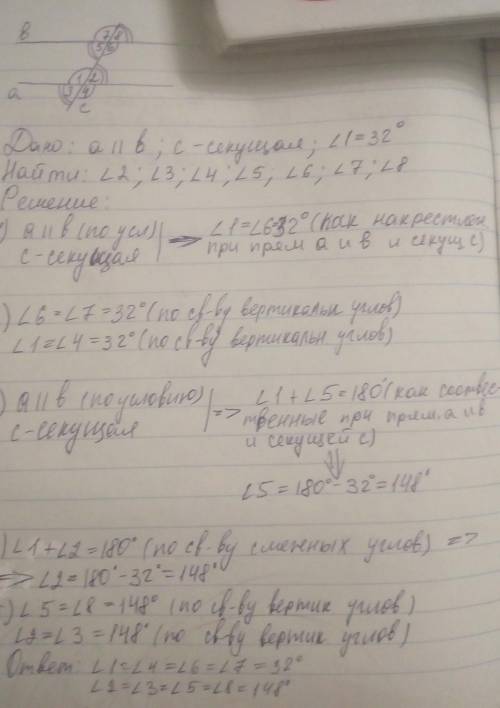 в
7 8
5 6
1 2
3 4
а
с
Дано: а || в ; с - секущая; ∠1=32°
Найти: ∠2; ∠3; ∠4; ∠5, ∠6; ∠7; ∠8
Решение:
) а || в (по усл) | => ∠1=∠6=32° (как накрестлеж
с-секущая | при прям а и в и секущ с)
) ∠6=∠7=32° (по св-ву вертикальн углов)
∠1=∠4=32° (по св-ву вертикальн углов)
) а || в (по условию) | => ∠1+∠5=180° (как соответ-
с-секущая | твенные при прям. а и в
и секущей с)
∠5=180°-32°=148°
) ∠1+∠2=180° (по св-ву смежных углов) =>
=> ∠2=180°-32°=148°
) ∠5=∠8=148° (по св-ву вертик углов)
∠2=∠3=148° (по св-ву вертик углов)
Ответ: ∠1=∠4=∠6=∠7=32°
∠2=∠3=∠5=∠8=148°